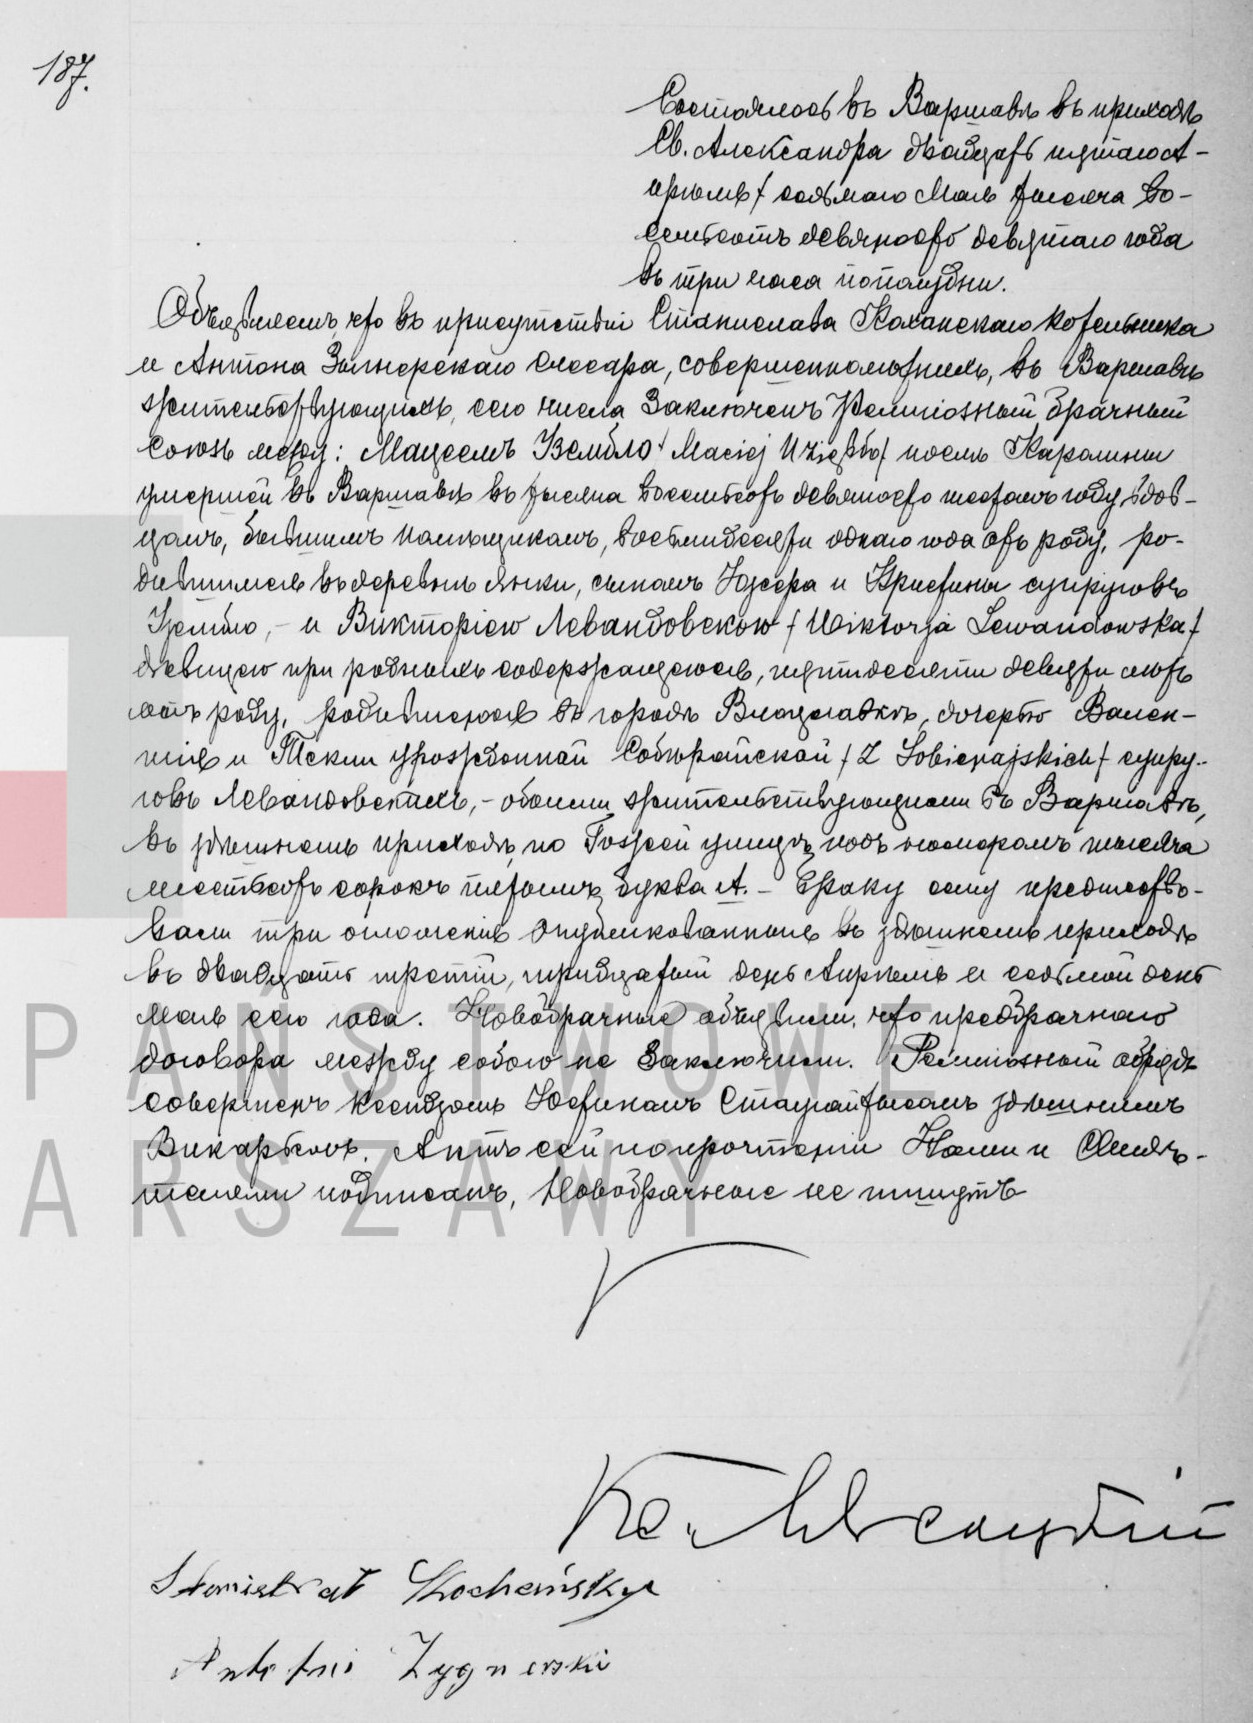 187.
Состоялось въ Варшавѣ въ приходѣ
Св. Александра двадцать пятаго А-
прѣля / седьмаго Мая тысяча во-
семьсотъ девяносто девятаго года
въ три часа пополудни.
Объявляемъ, что въ присутствіи Станислава Коханскаго котельника
и Антона Зыгнерскаго слесаря, совершеннолѣтнихъ, въ Варшавѣ
жительствующихъ, сего числа заключенъ Религіозный брачный
союзъ между: Мацеемъ Узембло / Maciej Uziębło / послѣ Каролины
умершей въ Варшавѣ въ тысяча восемьсотъ девяносто шестомъ году вдов-
цомъ, бывшимъ каменщикомъ, восьмидесяти однаго года отъ роду, ро-
дившимся въ деревнѣ Лянки, сыномъ Юзефа и Кристины супруговъ
Узембло, - и Викторіею Левандовскою / Wiktorja Lewandowska /
дѣвицею при родныхъ содержащеюся, пятидесяти девяти лѣтъ
отъ роду, родившеюся въ городѣ Влоцлавкѣ, дочерью Вален-
тія и Теклы урожденной Собѣрайской / z Sobierajskich / супру-
говъ Левандовскихъ, - обоими жительствующими въ Варшавѣ,
въ здѣшнемъ приходѣ, по Гожей улицѣ, подъ номеромъ тысяча
шестьсотъ сорокъ пятымъ, буква А. - Браку сему предшество-
вали три оглашенія опубликованныя въ здѣшнемъ приходѣ
въ двадцать третій, тридцатый день Апрѣля и седьмой день
Мая сего года. Новобрачные объявили, что предбрачнаго
договора между собою не заключили. Религіозный обрядъ
совершенъ Ксендзомъ Юзефиномъ здѣшнимъ
Викарьемъ. Актъ сей по прочтеніи Нами и Свидѣ-
телями подписанъ, Новобрачные не пишутъ
Кс.
Stanisław Kochański
Antoni Zygnerski
PAŃSTWOWE
ARSZAWY